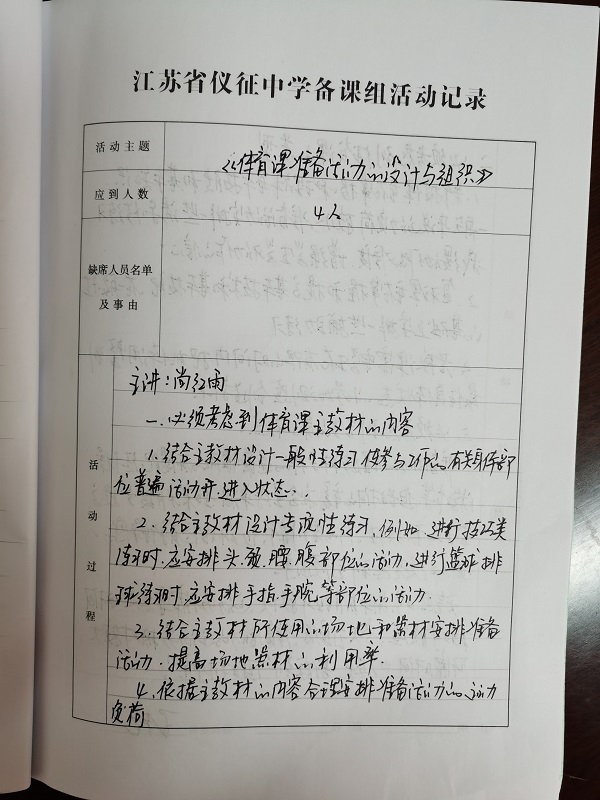 江苏省仪征中学备课组活动记录
活动主题
《体育课准备活动的设计与组织》
应到人数
4人
缺席人员名单
及事由
活动过程
主讲:尚红雨
一、必须考虑到体育课主教材的内容
1、结合主教材设计一般性练习使参与工作的有关身体部
位普遍活动开,进入状态。
2、结合主教材设计专项性练习,例如,进行技巧类
练习时,应安排头、颈、腰、腹部位的活动,进行篮球、排
球练习时,应安排手指、手腕等部位的活动.
3、结合主教材所使用的场地和器材安排准备
活动,提高场地器材的利用率.
4、依据主教材的内容合理安排准备活动的运动
负荷